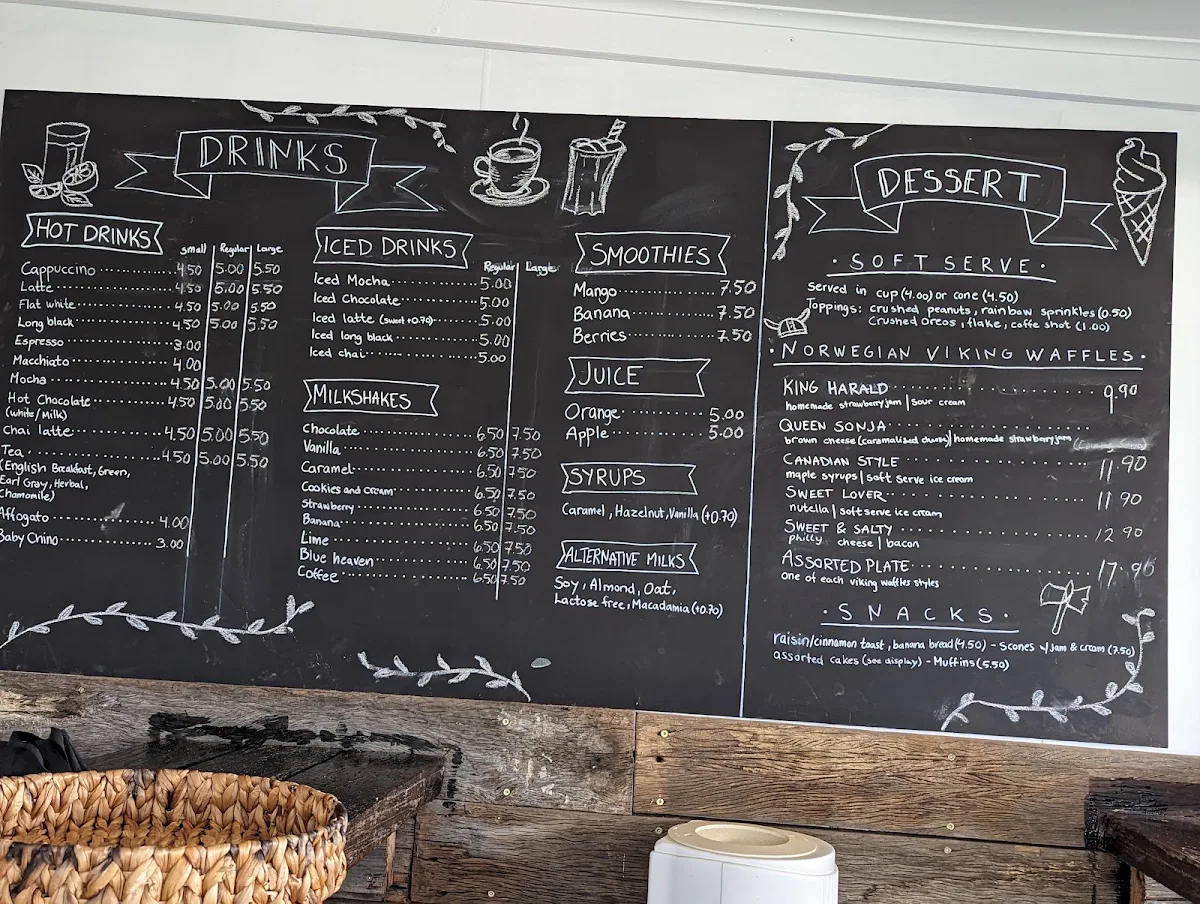 DRINKS
HOT DRINKS
small Regular Large
Cappuccino 4.50 5.00 5.50
Latte 4.50 5.00 5.50
Flat white 4.50 5.00 5.50
Long black 4.50 5.00 5.50
Espresso 3.00
Macchiato 4.00
Mocha 4.50 5.00 5.50
Hot Chocolate 4.50 5.00 5.50
(white/Milk)
chai latte 4.50 5.00 5.50
Tea 4.50 5.00 5.50
(English Breakfast, Green,
Earl Gray, Herbal,
Chamomile)
Affogato 4.00
Baby Chino 3.00
ICED DRINKS
Regular Large
Iced Mocha 5.00
Iced Chocolate 5.00
Iced latte (sweet +0.70) 5.00
Iced long black 5.00
Iced chai 5.00
MILKSHAKES
Chocolate 6.50 7.50
Vanilla 6.50 7.50
Caramel 6.50 7.50
Cookies and cream 6.50 7.50
Strawberry 6.50 7.50
Banana 6.50 7.50
Lime 6.50 7.50
Blue heaven 6.50 7.50
Coffee 6.50 7.50
SMOOTHIES
Mango 7.50
Banana 7.50
Berries 7.50
JUICE
Orange 5.00
Apple 5.00
SYRUPS
Caramel, Hazelnut, Vanilla (+0.70)
ALTERNATIVE MILKS
Soy, Almond, Oat,
Lactose free, Macadamia (+0.70)
DESSERT
SOFT SERVE
Served in cup (4.00) or cone (4.50)
Toppings: crushed peanuts, rainbow sprinkles (0.50)
crushed oreos, flake, coffe shot (1.00)
NORWEGIAN VIKING WAFFLES
KING HARALD 9.90
homemade strawberry jam | sour cream
QUEEN SONJA
brown cheese (caramalised cheese) | homemade strawberry jam (Coming Soon)
CANADIAN STYLE 11.90
maple syrups | soft serve ice cream
SWEET LOVER 11.90
nutella | soft serve ice cream
SWEET & SALTY 12.90
philly cheese | bacon
ASSORTED PLATE 17.90
one of each viking waffles styles
SNACKS
raisin/cinnamon toast, banana bread (4.50) - scones w/ Jam & cream (7.50)
assorted cakes (see display) - Muffins (5.50)